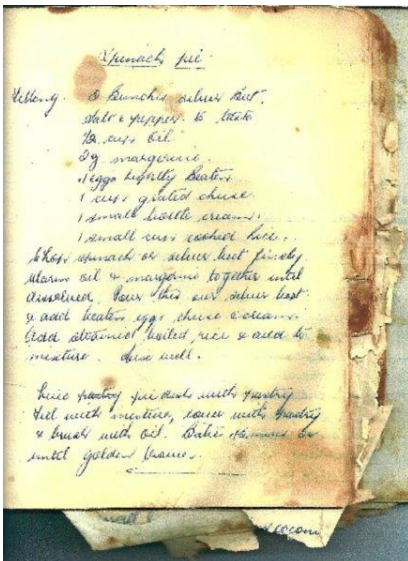 Spinach pie
Filling. 2 Bunches silver beet.
Salt & pepper to taste
1/2 cup Oil
margarine.
eggs lightly beaten
1 cup grated cheese
1 small bottle cream.
1 small cup cooked rice.
Chop spinach or silver beet finely
Warm oil & margarine together until
dissolved. Pour this over silver beet
& add beaten eggs cheese & cream.
Add strained boiled rice & add to
mixture. well.
Line pastry pie dish with pastry
Fill with mixture, cover with pastry
& brush with oil. Bake or
until golden brown.